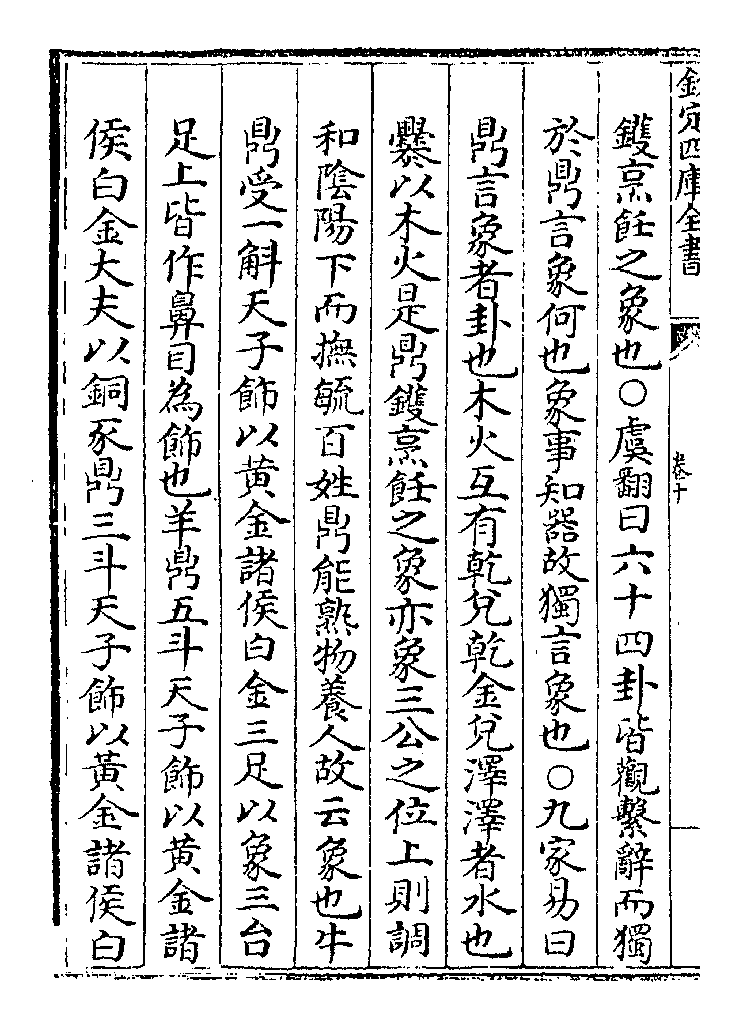 欽定四庫全書
卷十
鑊烹飪之象也○虞翻曰六十四卦皆觀繫辭而獨
於鼎言象何也象事知器故獨言象也○九家易曰
鼎言象者卦也木火互有乾兌乾金兌澤澤者水也
爨以木火是鼎鑊烹飪之象亦象三公之位上則調
和陰陽下而撫毓百姓鼎能熟物養人故云象也牛
鼎受一斛天子飾以黄金諸侯白金三足以象三台
足上皆作鼻目為飾也羊鼎五斗天子飾以黄金諸
侯白金大夫以銅豕鼎三斗天子飾以黃金諸侯白